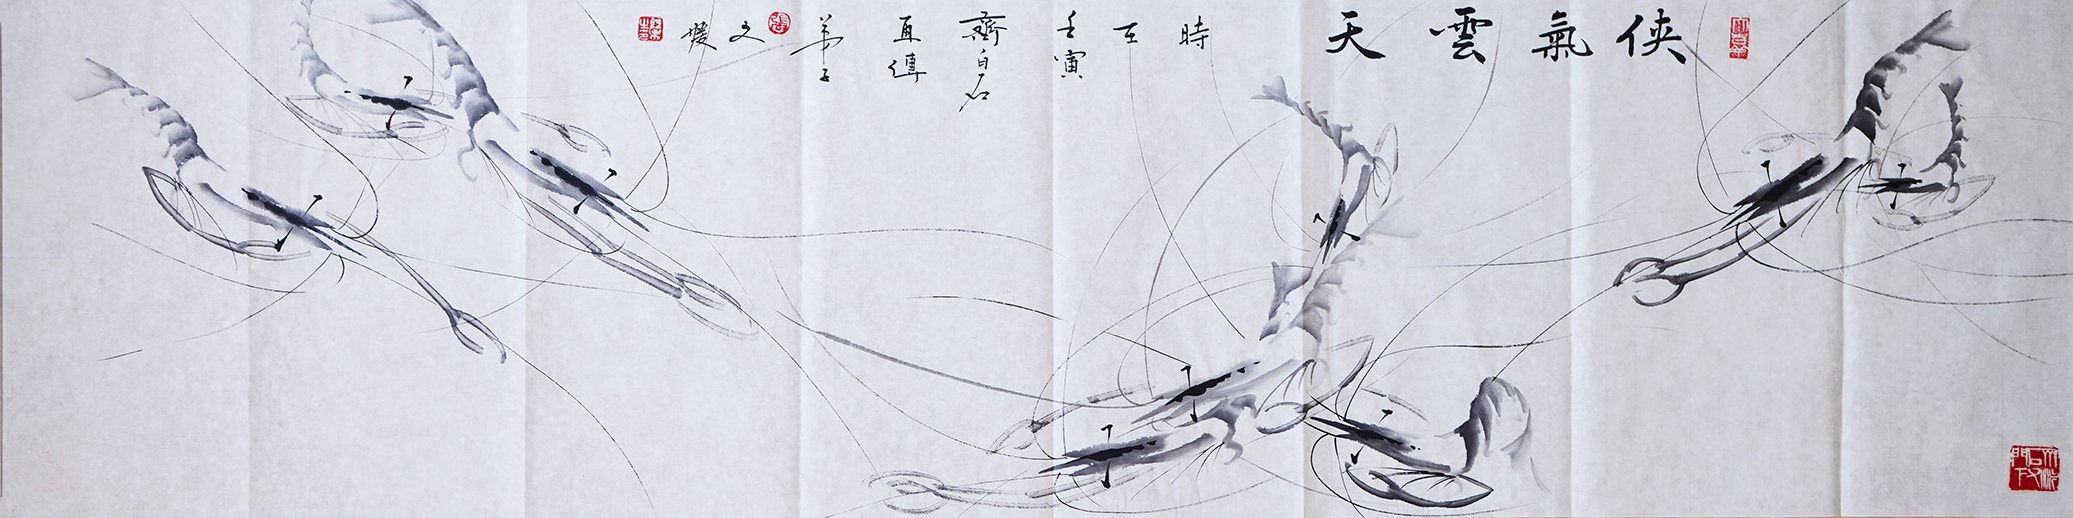 侠氣雲天
時在
壬寅
齊白石
直傳
弟子
文媛